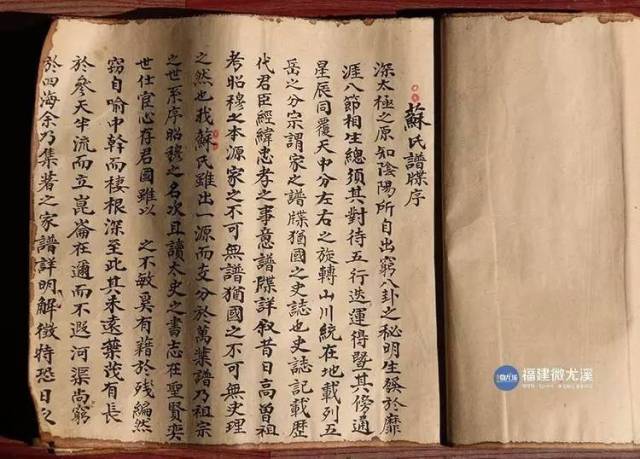 蘇氏譜牒序
深太極之原知陰陽所自出窮八卦之秘明生發於靡
涯八節相生總須其對待五行迭運得暨其傍通
星辰同覆天中分左右之旋轉山川統在地載列五
岳之分宗謂家之譜牒猶國之史誌也史誌記載歷
代君臣經緯忠孝之事意譜牒詳叙昔日高曾祖
考昭穆之本源家之不可無譜猶國之不可無史理
之然也我蘇氏雖出一源而支分於萬葉譜乃祖宗
之世系序昭穆之名次且讀太史之書志在聖賢奕
世仕宦心存君國雖以 之不敏莫有籍於残編然
窃自喻中幹而棲根深至此其禾遠葉茂有長
於參天半流而立崑崙在邇而不遐河渠尚窮
於四海余乃集著之家譜詳明解徵特恐日久
福建微尤溪